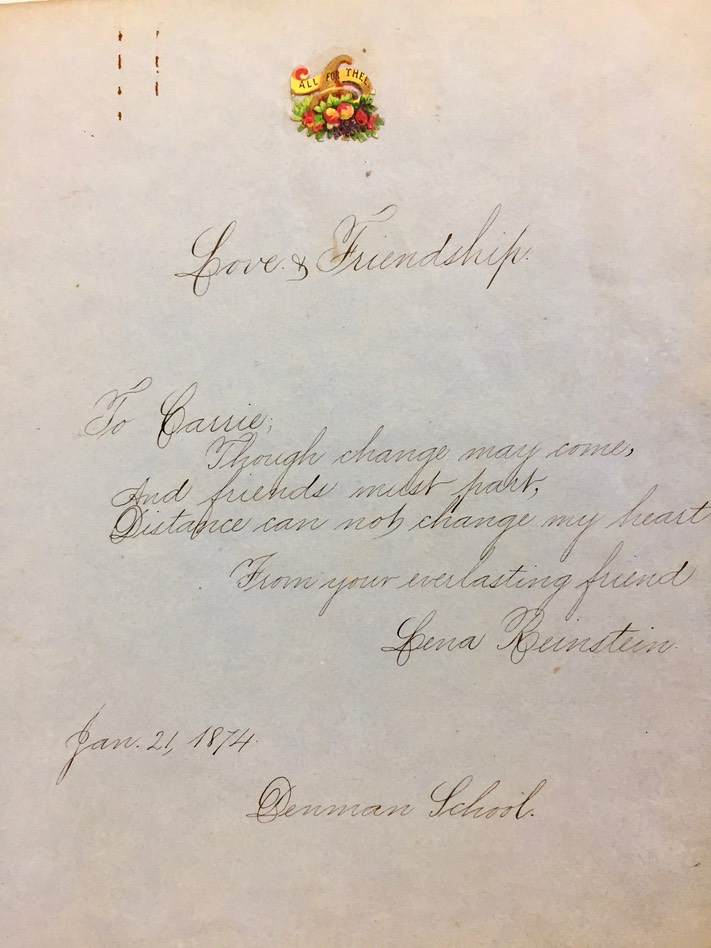 ALL FOR THEE
Love & Friendship.
To Carrie,
Though change may come,
And friends must part,
Distance can not change my heart
From your everlasting friend
Lena Reinstein.
Jan. 21, 1874.
Denman School.